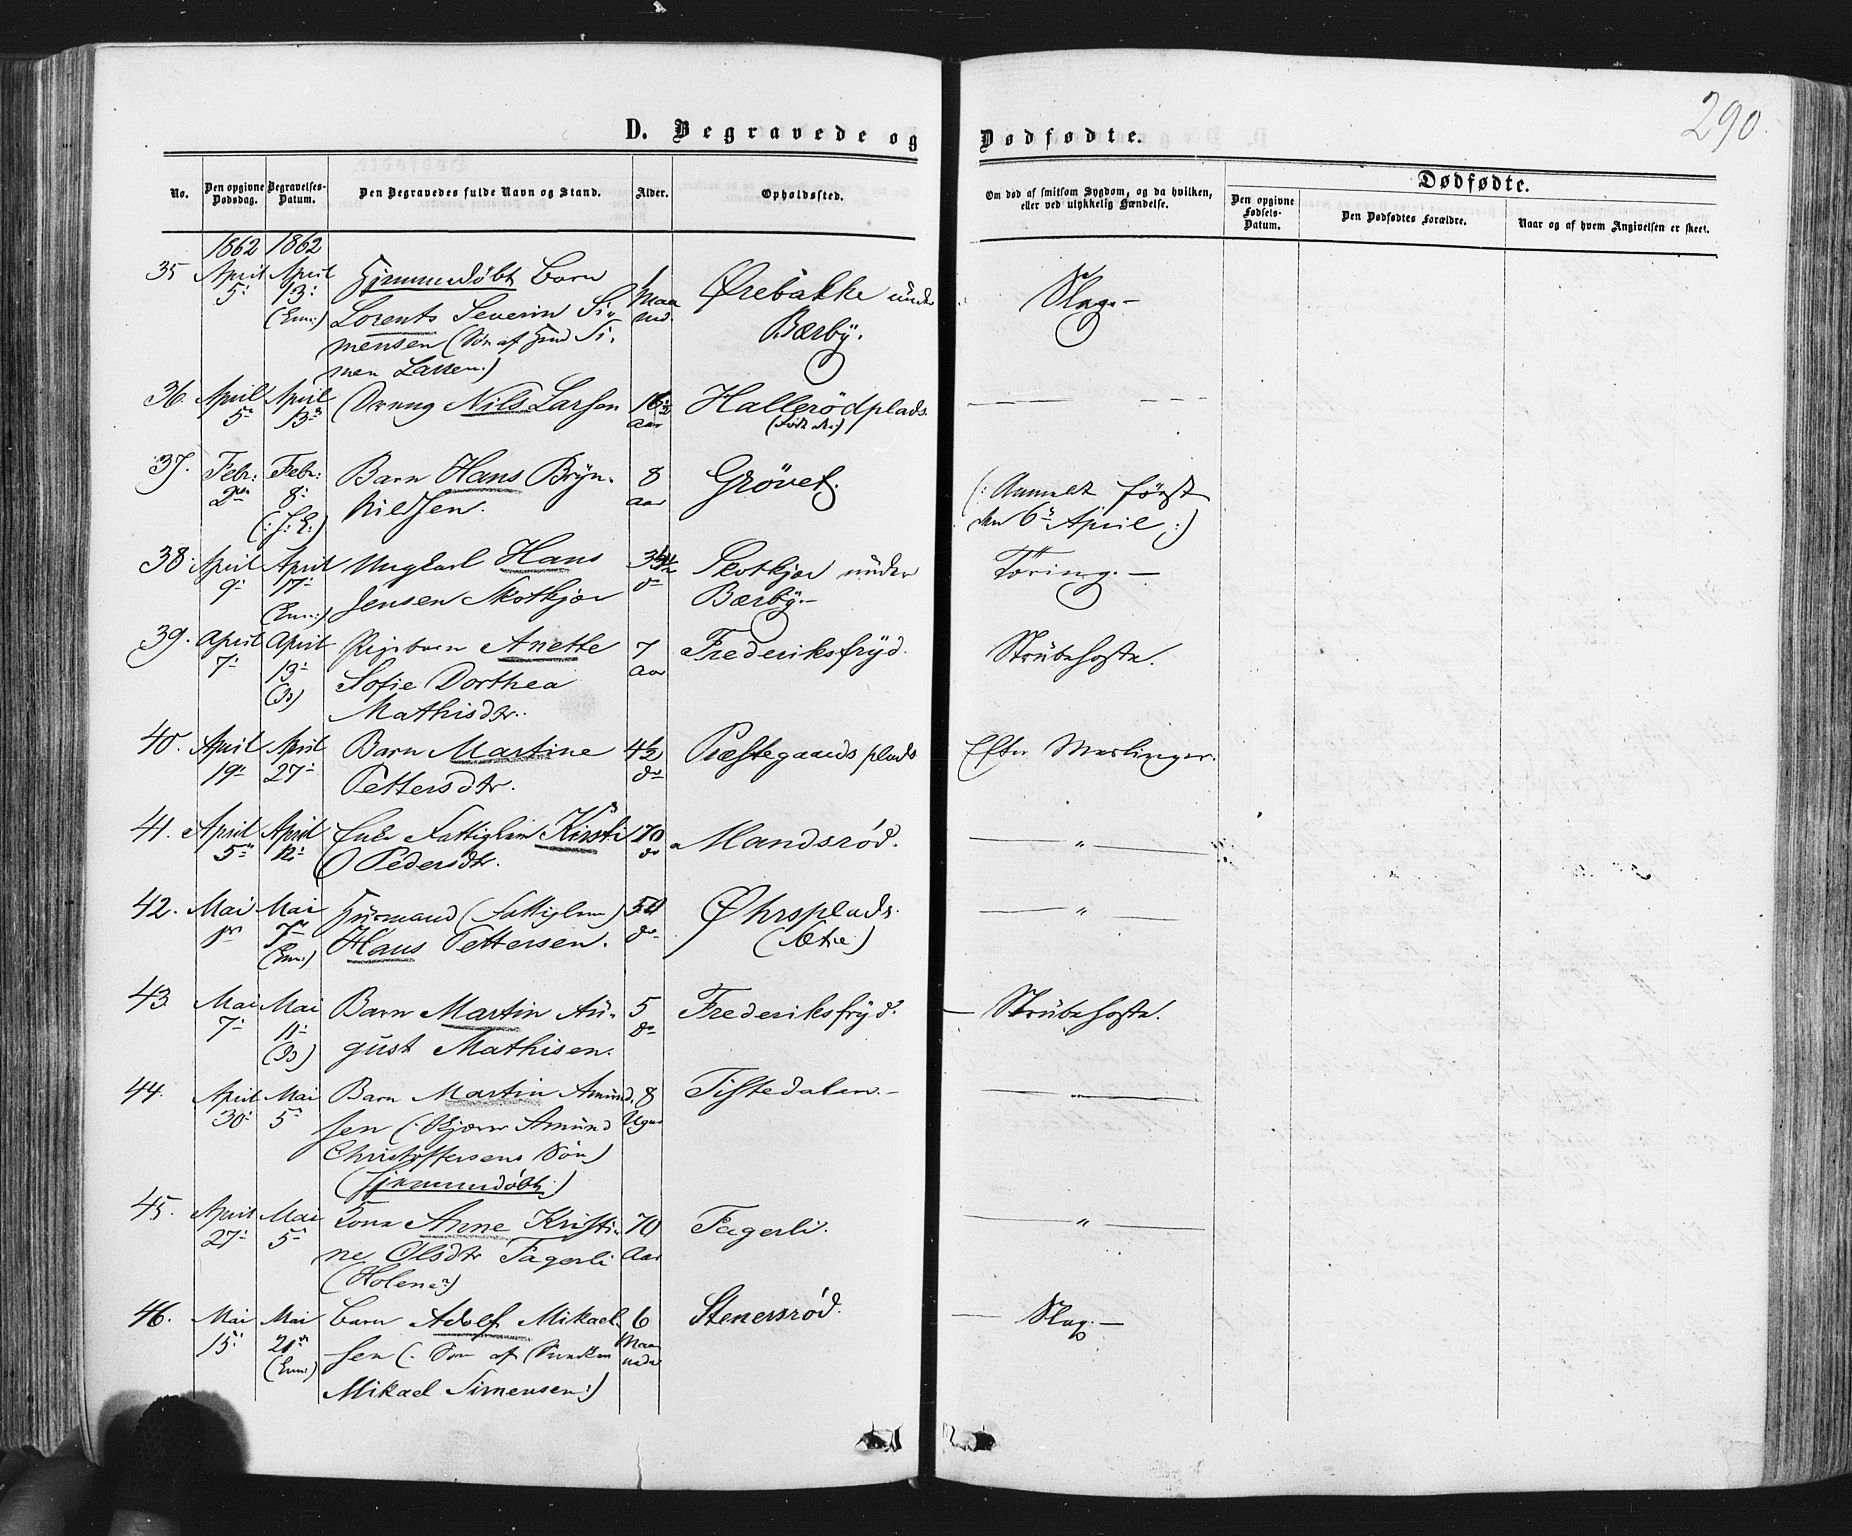 290.
D. Begravede og Dødfødte.
No. Den opgivne Dødsdag. Begravelses-Datum. Den Begravedes fulde Navn og Stand. Alder. Opholdssted. Om død af smitsom Sygdom, og da hvilken, eller ved ulykkelig Hændelse. Dødfødte.
Den opgivne Fødsels-Datum. Den Dødfødtes Forældre. Naar og af hvem Angivelsen er skeet.
1862 1862
35 April 5: April 13: Hjemmedøbt Barn 1 Maa Ørebakke under Slag.-
(Enn:) Lorents Severin Si- ned. Bærby.
mensen (Søn af Si-
men Larsen.)
36. April 5 April 13 Dreng Nils Larsen 16 Aar Hallerødplads. — —
37. Febr: 2 Febr: 8: Barn Hans Bryn- 8 Grøvet. (: Anmeldt først
(: J. E:) hildsen. aar den 6 April :)
38: April 9: April 17: Ungkarl Hans Skotkjær under Tæring.-
(Enn:) Jensen Skotkjær do Bærby.-
39. April 7: April 13: Pigebarn Anette 7 Frederiksfryd. Strübehoste.
Sofie Dorthea Aar
Mathisdtr.
40. April 19: April 27: Barn Martine 4½ Præstegaards plads Efter Meslinger.
Pettersdtr. do
41. April 5 April 12: Enke Fattiglem Kirsti 70 Mandsrød. — " —
Pedersdtr. do
42. Mai Mai 7 Husmand (Fattiglem) Øhrsplads. — " —
(Enn:) Hans Pettersen. do
43. Mai 7: Mai 11: Barn Martin Aü- 5 Frederiksfryd. — Strübehoste.
gust Mathisen. do
44. April 30: Mai 5 Barn Martin Amünd- 8 Tistedalen.- — " —
sen (: Amünd Uger
Christoffersens Søn)
(Hjemmedøbt:)
45. April 27: Mai 5 Kone Anne Kristi- 70 Fagerli. — " —
ne Olsdtr Fagerli Aar
(Holene:)
46. Mai 15: Mai 21 Barn Adolf Mikael- 6 Stenersrød. — Slag.-
(Enn:) sen (: Søn af Maa
Mikael Simensen:) neder